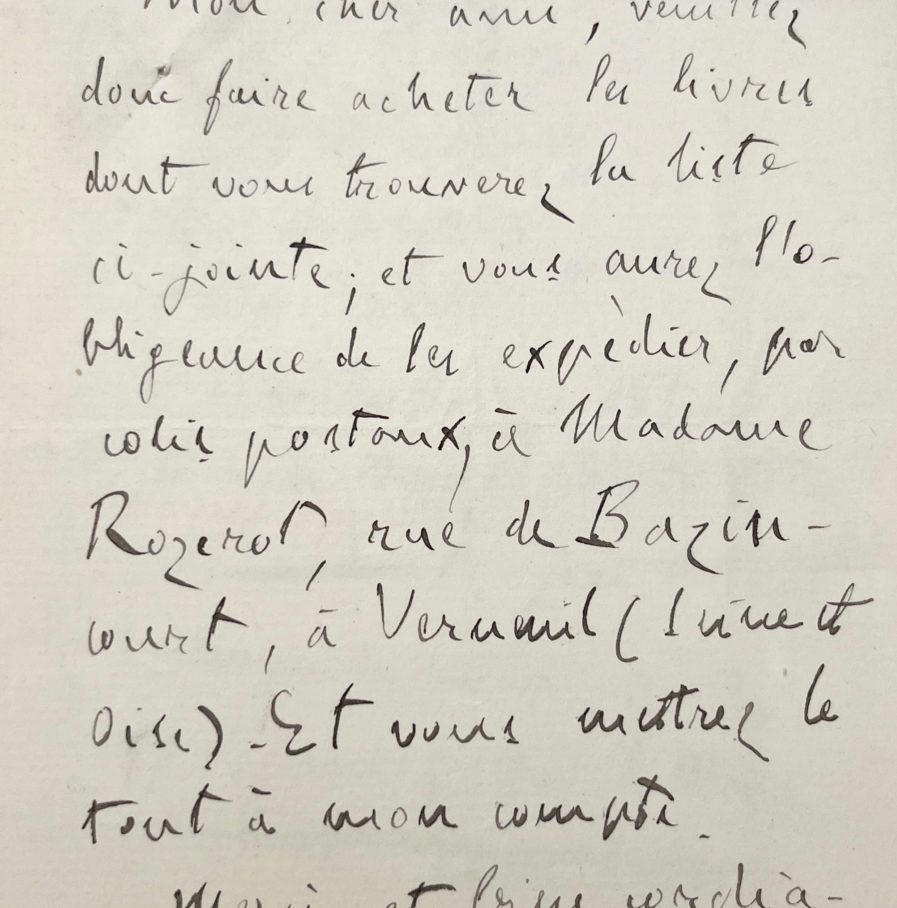 Mon cher ami, veuillez
donc faire acheter les livres
dont vous trouverez la liste
ci-jointe; et vous aurez l'o-
bligeance de les expèdier, par
colis postaux, à Madame
Rozerot, rue de Bazin-
court, à Verneuil (Seine et
Oise). Et vous mettrez le
tout à mon compte.
Merci, et bien cordia-